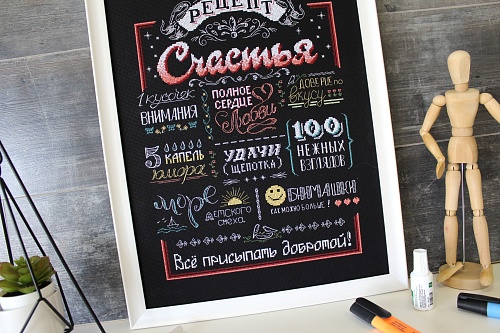 РЕЦЕПТ
Счастья
1 кусочек
ВНИМАНИЯ
ПОЛНОЕ
СЕРДЦЕ
Любви
ДОВЕРИЕ по
вкусу
5 КАПЕЛЬ
юмора
УДАЧИ
(ЩЕПОТКА)
100
НЕЖНЫХ
ВЗГЛЯДОВ
море
ДЕТСКОГО
смеха
ОБНИМАШКИ
КАК МОЖНО БОЛЬШЕ!
Всё присыпать добротой!